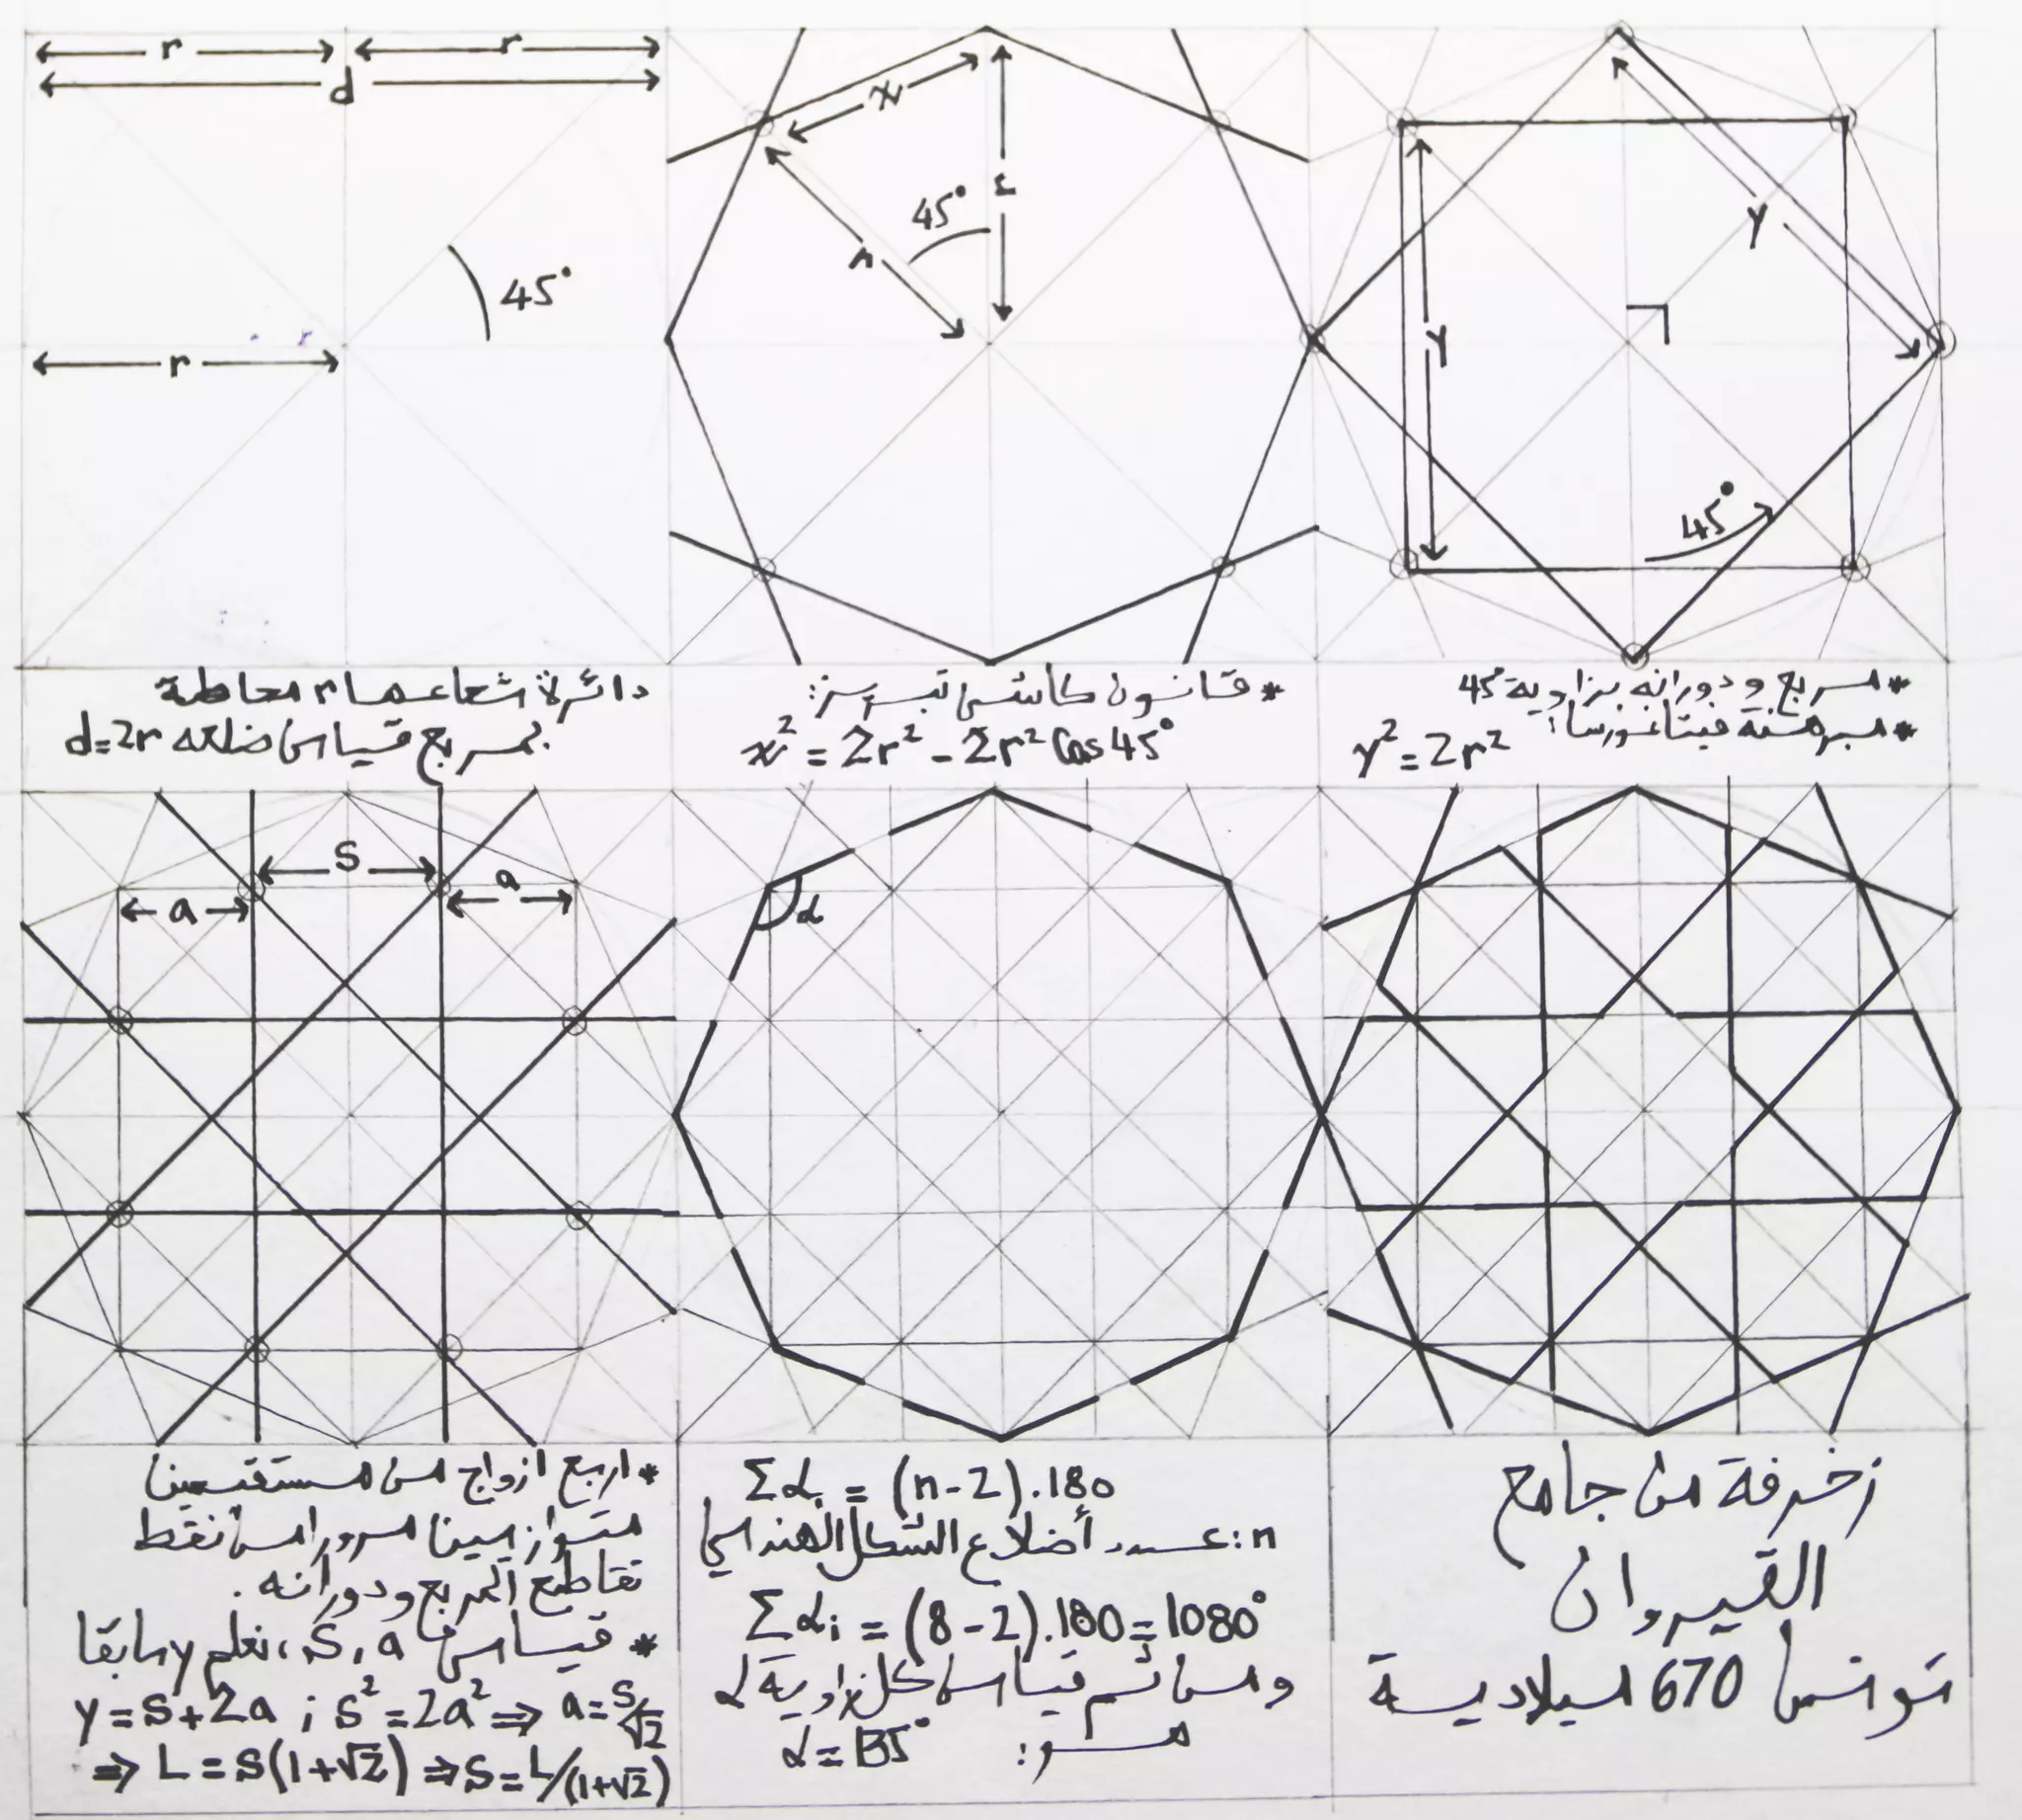 r r
d
45°
r
دائرة شعاعها r محاطة
بمربع قياس ضلعه d=2r
x
r
45°
r
* قانون كاشي تبريز:
x² = 2r² - 2r² Cos 45°
y
y
45°
* مربع ودورانه بزاوية 45°
* مبرهنة فيتاغورسا:
y² = 2r²
S
a a
* اربع ازواج من مستقيمين
متوازيين مرورا من نقط
تقاطع المربع ودورانه.
* قياس a, S، نعلم y سابقا
y = S + 2a ; S² = 2a² ⇒ a = S/√2
⇒ L = S(1+√2) ⇒ S = L/(1+√2)
α
Σαi = (n-2).180
n: عدد أضلاع الشكل الهندسي
Σαi = (8-2).180 = 1080°
ومن ثم قياس كل زاوية α
هو:
α = 135°
زخرفة من جامع
القيروان
تونس 670 ميلادية